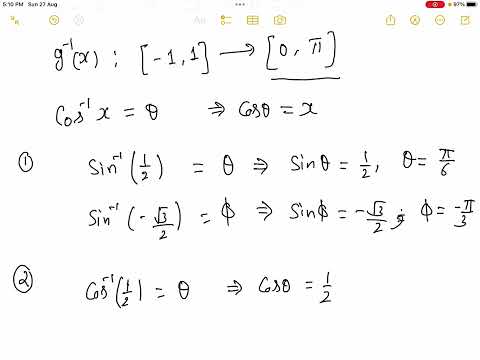 5:10 PM Sun 27 Aug
97%
Aa
g⁻¹(x) : [-1, 1] → [0, π]
Cos⁻¹ x = θ ⇒ Cosθ = x
① Sin⁻¹(1/2) = θ ⇒ Sinθ = 1/2, θ = π/6
Sin⁻¹(-√3/2) = ϕ ⇒ Sinϕ = -√3/2; ϕ = -π/3
② Cos⁻¹(1/2) = θ ⇒ Cosθ = 1/2